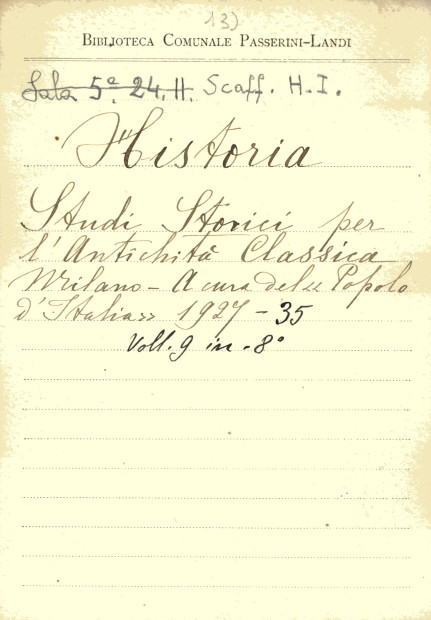 13)
BIBLIOTECA COMUNALE PASSERINI-LANDI
Sala 5ª. 24. H. Scaff. H.I.
"Historia
Studi Storici per
l'Antichità Classica
Milano - A cura del "Popolo
d'Italia" 1927 - 35
Voll. 9 in - 8°